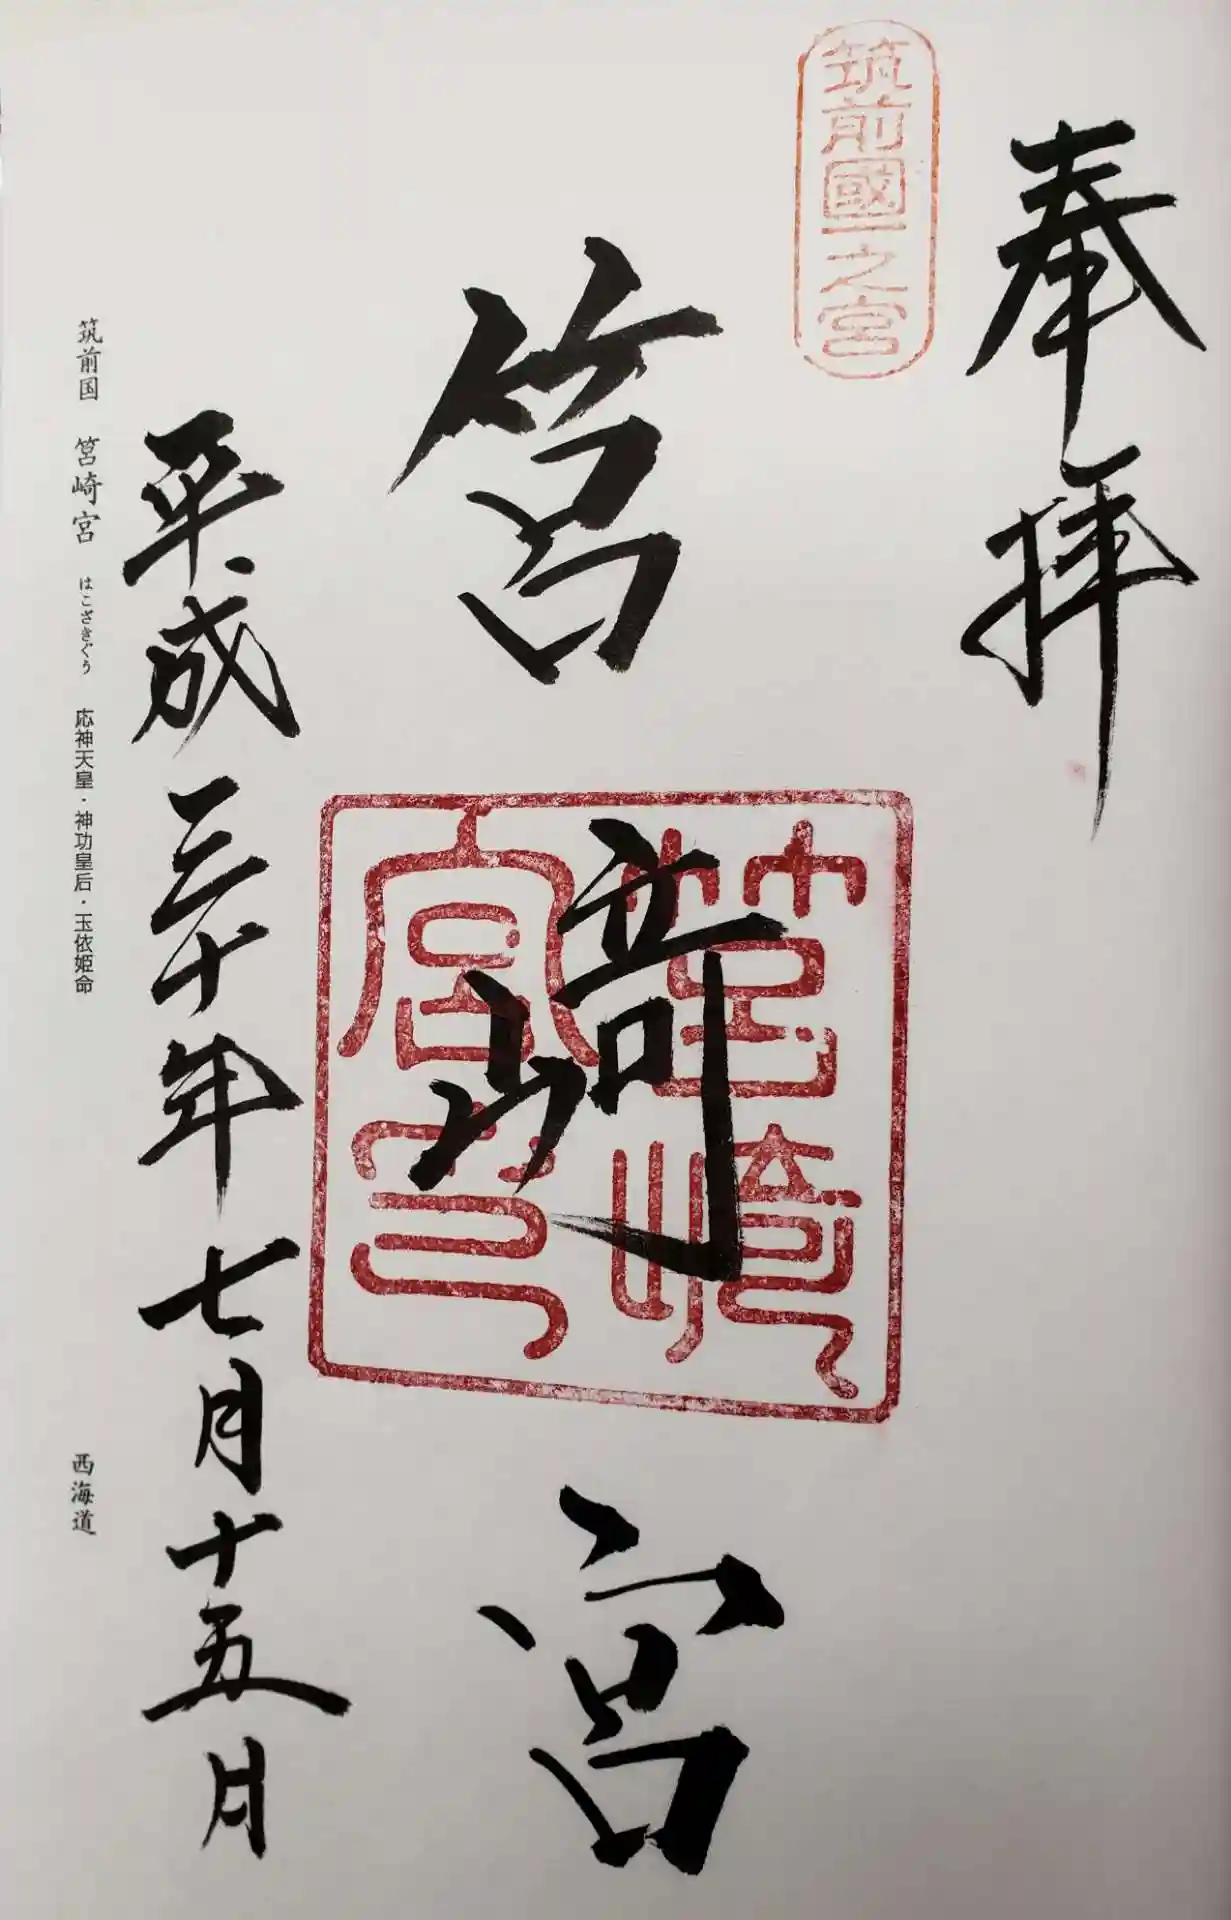 奉拝
筑前國一之宮
筥崎宮
筥崎
宮印
平成三十年七月十五日
筑前国 筥崎宮 はこざきぐう 応神天皇・神功皇后・玉依姫命 西海道